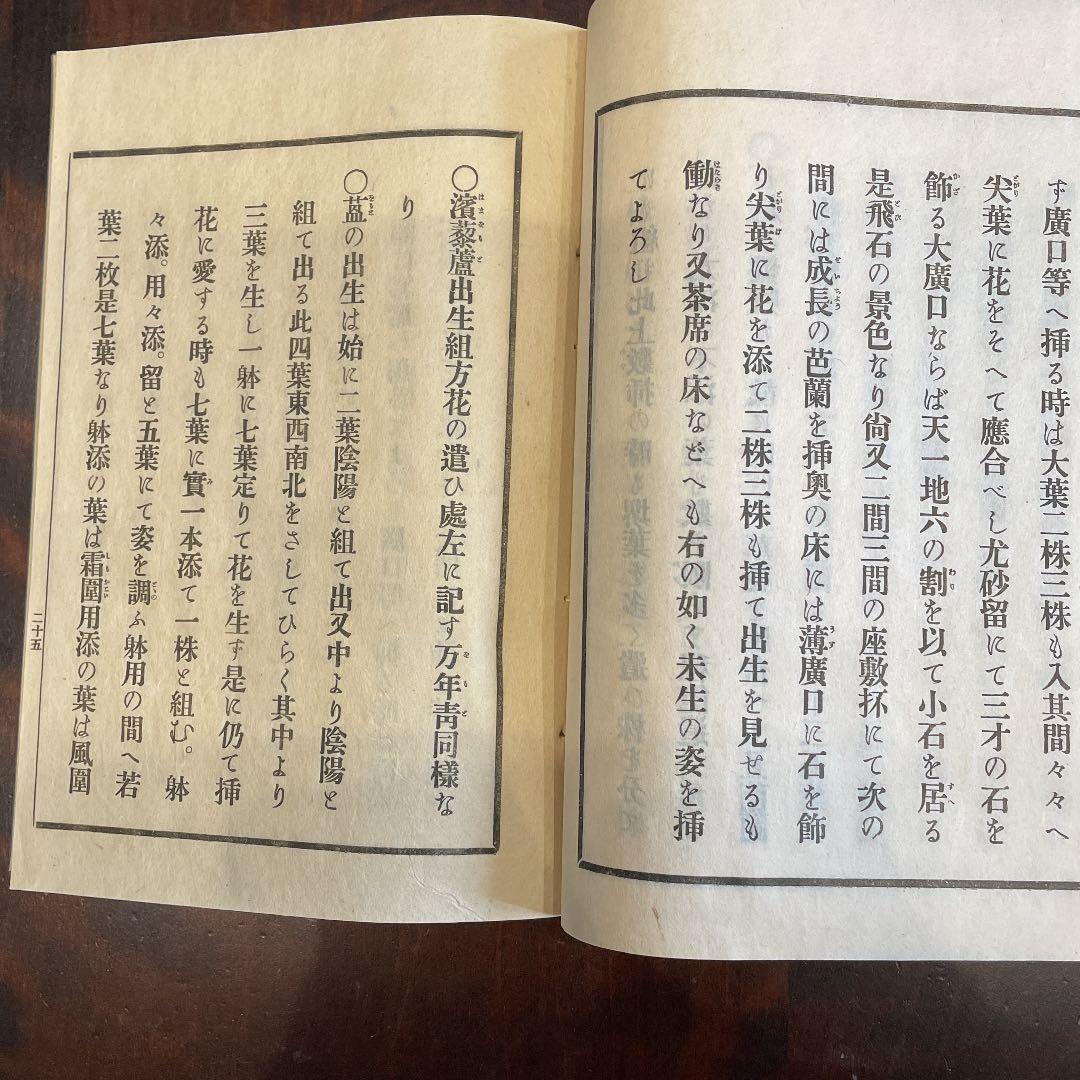 ず廣口等へ挿る時は大葉二株三株も入其間々々へ
尖葉に花をそへて應合べし尤砂留にて三才の石を
飾る大廣口ならば天一地六の割を以て小石を居る
是飛石の景色なり尙又二間三間の座敷抔にて次の
間には成長の芭蘭を挿奥の床には薄廣口に石を飾
り尖葉に花を添て二株三株も挿て出生を見せるも
働なり又茶席の床などへも右の如く未生の姿を挿
てよろし
○濱藜蘆出生組方花の遣ひ處左に記す万年靑同樣な
り
○葢の出生は始に二葉陰陽と組て出又中より陰陽と
組て出る此四葉東西南北をさしてひらく其中より
三葉を生し一躰に七葉定りて花を生す是に仍て挿
花に愛する時も七葉に實一本添て一株と組む。躰
々添。用々添。留と五葉にて姿を調ふ躰用の間へ若
葉二枚是七葉なり躰添の葉は霜圍用添の葉は風圍
二十五